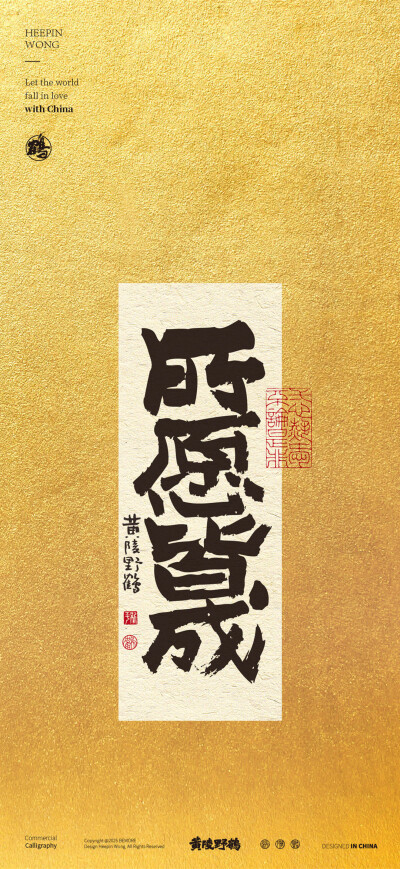 HEEPIN
WONG
Let the world
fall in love
with China
鹤
所愿皆成
黄陵野鹤
Commercial
Calligraphy
Design Heepin Wong, All Rights Reserved
黄陵野鹤
DESIGNED IN CHINA